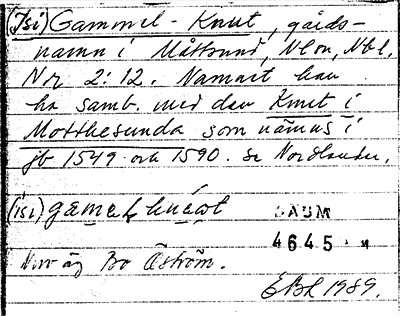 (Isi) Gammel-Knut, gårds-
namn i Måttsund, Nlu, Nbl,
Nr 2:12. Namnet kan
ha samb. med den Knut i
Motthesunda som nämns i
jb 1549 och 1590. Se Nordlander,
(isi) gamel
DAUM
4645
Nuv äg Bo Åström.
EBL 1989.